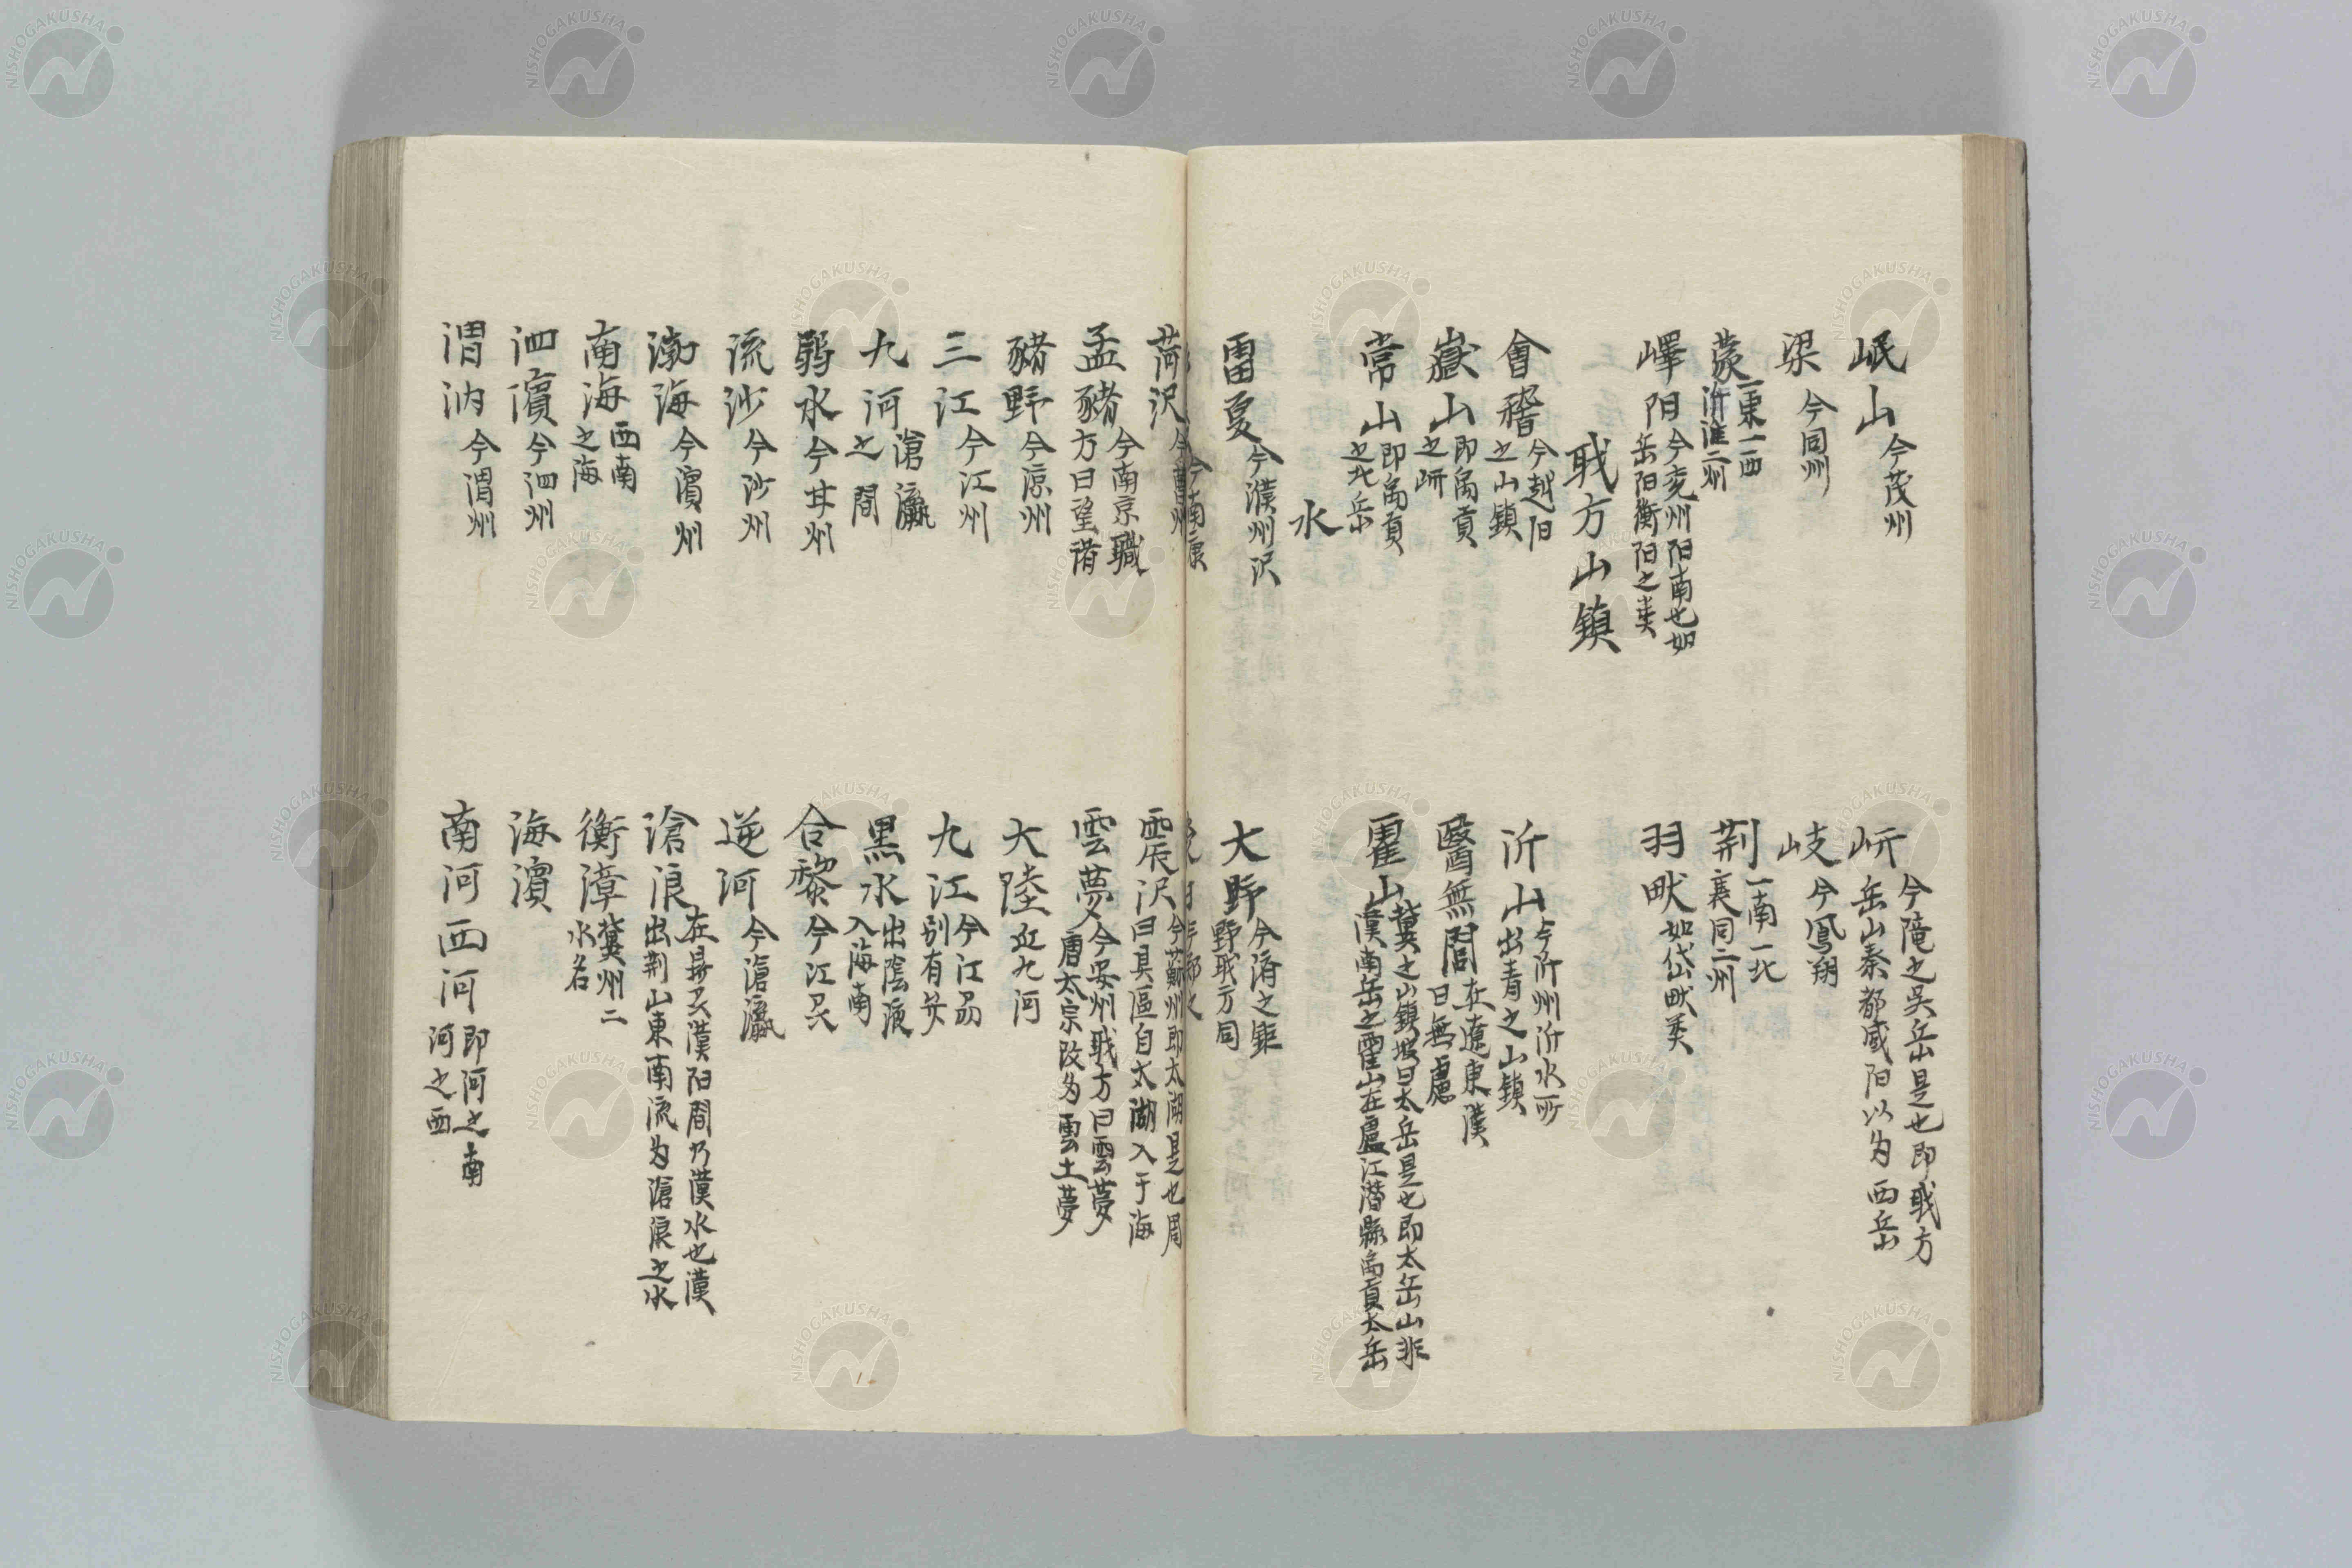 岷山 今茂州
岍 今隴之吳岳是也即戝方
岳山秦都咸阳以为西岳
梁 今同州
岐 今鳳翔
蒙 一東一西
沂淮二州
荆 一南一北
襄同二州
嶧阳 今兖州阳南也如
岳阳衡阳之类
羽畎 如岱畎类
戝方山鎮
會稽 今越阳
之山鎮
沂山 今沂州沂水所
出青之山鎮
嶽山 即禹貢
之岍
醫無閭 在遼東漢
曰無慮
常山 即禹貢
之北岳
霍山 冀之山鎮坡曰太岳是也即太岳山非
漢南岳之霍山在廬江潜縣禹貢太岳
水
雷夏 今濮州沢
大野 今済之鉅
野戝方同
菏沢 今曹州
震沢 今蘇州即太湖是也周
曰具區自太湖入于海
孟豬 今南京職
方曰望諸
雲夢 今安州戝方曰雲夢
唐太宗改为雲土夢
豬野 今凉州
大陸 並九河
三江 今江州
九江 今江昜
别有笑
九河 滄瀛
之間
黑水 出陰液
入海南
弱水 今甘州
合黎 今江昃
流沙 今沙州
逆河 今滄瀛
渤海 今濱州
滄浪 在昜昃漢阳間乃漢水也漢
出荆山東南流为滄浪之水
南海 西南
之海
衡漳 冀州二
水名
泗濱 今泗州
海濱
渭汭 今渭州
南河西河 即河之南
河之西
NISHOGAKUSHA